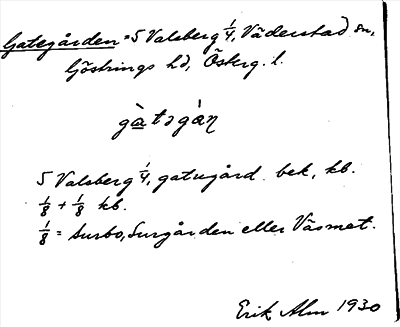 Gategården = 5 Valsberg 1/4, Väderstad sn,
Göstrings hd, Österg. l.
gàtəgáɳ
5 Valsberg 1/4, gatugård bek, kb.
1/8 + 1/8 kb.
1/8 = Surbo, Surgården eller Väsmet.
Erik Alm 1930